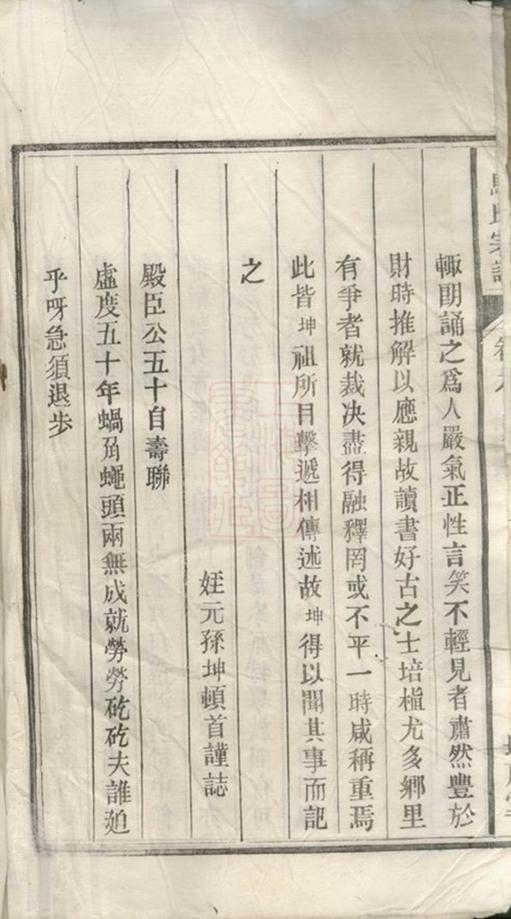 馬氏宗譜
輙朗誦之爲人嚴氣正性言笑不輕見者肅然豐於
財時推解以應親故讀書好古之士培植尤多鄉里
有爭者就裁决盡得融釋罔或不平一時咸稱重焉
此皆坤祖所目擊遞相傳述故坤得以聞其事而記
之
姪元孫坤頓首謹誌
殿臣公五十自壽聯
虛度五十年蝸角蠅頭兩無成就勞勞矻矻夫誰廹
乎呀急須退步